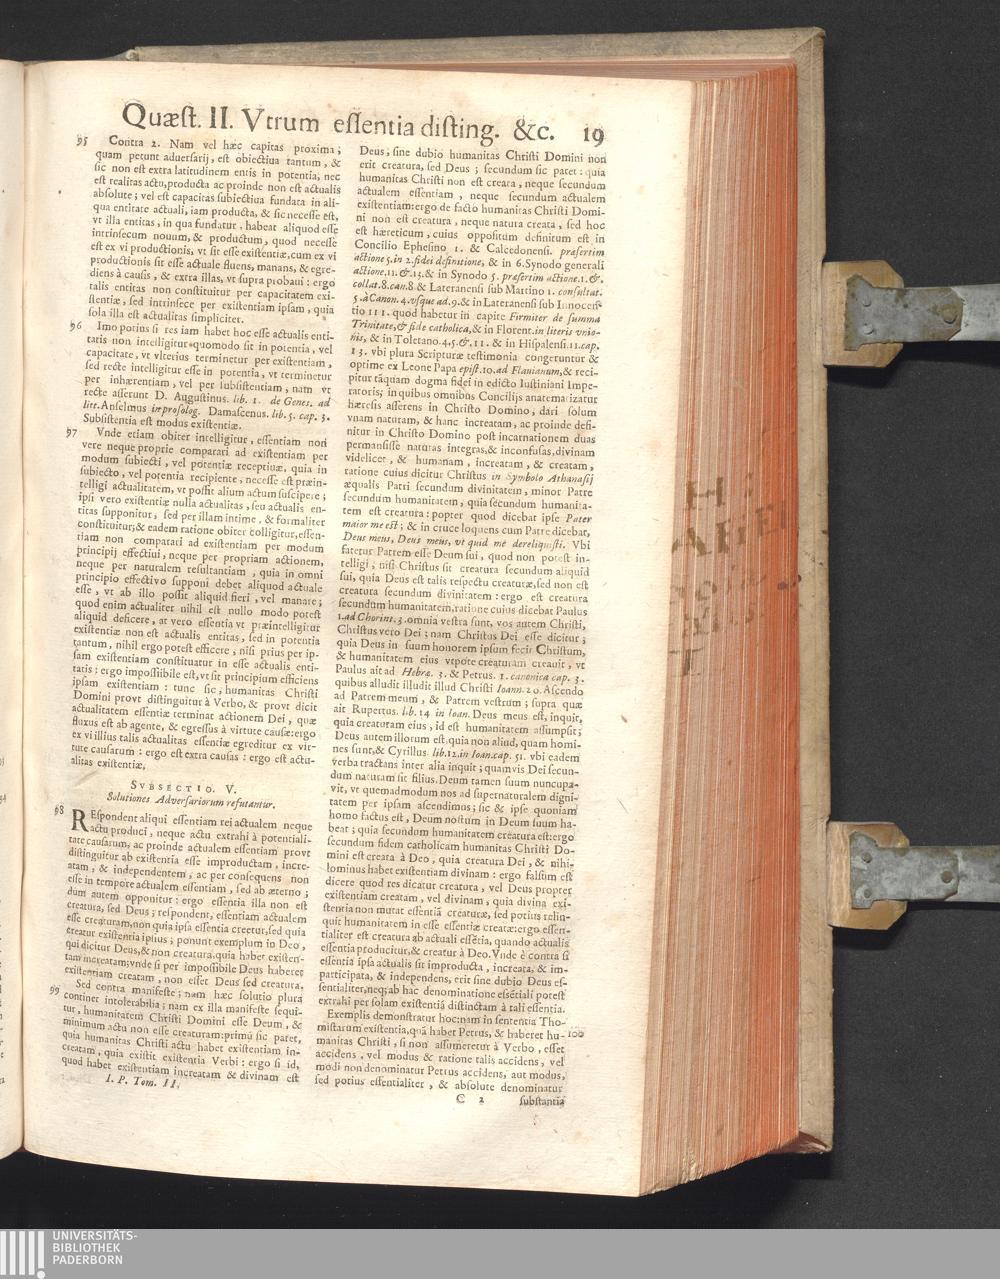 Quæſt. II. Vtrum eſſentia diſting. &c. 19
95 Contra 2. Nam vel hæc capitas proxima;
quam petunt aduerſarij, eſt obiectiua tantum, &
ſic non eſt extra latitudinem entis in potentia, nec
eſt realitas actu, producta ac proinde non eſt actualis
abſolute; vel eſt capacitas ſubiectiua fundata in ali-
qua entitate actuali, iam producta, & ſic neceſſe eſt,
vt illa entitas, in qua fundatur, habeat aliquod eſſe
intrinſecum nouum, & productum, quod neceſſe
eſt ex vi productionis, vt ſit eſſe exiſtentiæ, cum ex vi
productionis ſit eſſe actuale fluens, manans, & egre-
diens à cauſis, & extra illas, vt ſupra probaui: ergo
talis entitas non conſtituitur per capacitatem exi-
ſtentiæ, ſed intrinſece per exiſtentiam ipſam, quia
ſola illa eſt actualitas ſimpliciter.
96 Imo potius ſi res iam habet hoc eſſe actualis enti-
tatis non intelligitur quomodo ſit in potentia, vel
capacitate, vt vlterius terminetur per exiſtentiam,
ſed recte intelligitur eſſe in potentia, vt terminetur
per inhærentiam, vel per ſubſiſtentiam, nam vt
recte aſſerunt D. Auguſtinus. lib. 1. de Geneſ. ad
litt. Anſelmus in proſolog. Damaſcenus. lib. 5. cap. 3.
Subſiſtentia eſt modus exiſtentiæ.
97 Vnde etiam obiter intelligitur, eſſentiam non
vere neque proprie comparari ad exiſtentiam per
modum ſubiecti, vel potentiæ receptiuæ, quia in
ſubiecto, vel potentia recipiente, neceſſe eſt præin-
telligi actualitatem, vt poſſit alium actum ſuſcipere;
ipſi vero exiſtentiæ nulla actualitas, ſeu actualis en-
titas ſupponitur, ſed per illam intime, & formaliter
conſtituitur; & eadem ratione obiter colligitur, eſſen-
tiam non comparari ad exiſtentiam per modum
principij effectiui, neque per propriam actionem,
neque per naturalem reſultantiam, quia in omni
principio effectivo ſupponi debet aliquod actuale
eſſe, vt ab illo poſſit aliquid fieri, vel manare;
quod enim actualiter nihil eſt nullo modo poteſt
aliquid deficere, at vero eſſentia vt præintelligitur
exiſtentiæ non eſt actualis entitas, ſed in potentia
tantum, nihil ergo poteſt efficere, niſi prius per ip-
ſam exiſtentiam conſtituatur in eſſe actualis enti-
tatis: ergo impoſſibile eſt, vt ſit principium efficiens
ipſam exiſtentiam: tunc ſic, humanitas Chriſti
Domini provt diſtinguitur à Verbo, & provt dicit
actualitatem eſſentiæ terminat actionem Dei, quæ
fluxus eſt ab agente, & egreſſus à virtute cauſæ: ergo
ex vi illius talis actualitas eſſentiæ egreditur ex vir-
tute cauſarum: ergo eſt extra cauſas: ergo eſt actu-
alitas exiſtentiæ,
SVBSECTIO. V.
Solutiones Adverſariorum refutantur.
98 REſpondent aliqui eſſentiam rei actualem neque
actu produci, neque actu extrahi à potentiali-
tate cauſarum, ac proinde actualem eſſentiam provt
diſtinguitur ab exiſtentia eſſe improductam, incre-
atam, & independentem, ac per conſequens non
eſſe in tempore actualem eſſentiam, ſed ab æterno;
dum autem opponitur: ergo eſſentia illa non eſt
creatura, ſed Deus; reſpondent, eſſentiam actualem
eſſe creaturam, non quia ipſa eſſentia creetur, ſed quia
creatur exiſtentia ipſius; ponunt exemplum in Deo,
qui dicitur Deus, & non creatura. quia habet exiſten-
tam increatam; vnde ſi per impoſſibile Deus haberet
exiſtentiam creatam, non eſſet Deus ſed creatura.
99 Sed contra manifeſte; nam hæc ſolutio plura
continet intolerabilia; nam ex illa manifeſte ſequi-
tur, humanitatem Chriſti Domini eſſe Deum, &
minimum actu non eſſe creaturam: primū ſic patet,
quia humanitas Chriſti actu habet exiſtentiam in-
creatam, quia exiſtit exiſtentia Verbi: ergo ſi id,
quod habet exiſtentiam increatam & divinam eſt
I. P. Tom. II.
Deus, ſine dubio humanitas Chriſti Domini non
erit creatura, ſed Deus; ſecundum ſic patet: quia
humanitas Chriſti non eſt creata, neque ſecundum
actualem eſſentiam, neque ſecundum actualem
exiſtentiam: ergo de facto humanitas Chriſti Domi-
ni non eſt creatura, neque natura creata, ſed hoc
eſt hæreticum, cuius oppoſitum definitum eſt in
Concilio Epheſino 1. & Calcedonenſi. præſertim
actione 5. in 2. fidei definitione, & in 6. Synodo generali
actione, 11. &. 15. & in Synodo 5. præſertim actione. 1. &.
collat. 8. can. 8 & Lateranenſi ſub Martino 1. conſultat.
5. à Canon. 4. vſque ad. 9. & in Lateranenſi ſub Innocen-
tio III. quod habetur in capite Firmiter de ſumma
Trinitate, & fide catholica, & in Florent. in literis vnio-
nis, & in Toletano. 4. 5. &. 11. & in Hiſpalenſi. 11. cap.
13. vbi plura Scripturæ teſtimonia congeruntur &
optime ex Leone Papa epiſt. 10. ad Flauianum, & reci-
pitur tāquam dogma fidei in edicto Iuſtiniani Impe-
ratoris; in quibus omnibus Concilijs anatematizatur
hæreſis aſſerens in Chriſto Domino, dari ſolum
vnam naturam, & hanc increatam, ac proinde defi-
nitur in Chriſto Domino poſt incarnationem duas
permanſiſſe naturas integras, & inconfuſas, divinam
videlicet, & humanam, increatam, & creatam,
ratione cuius dicitur Chriſtus in Symbolo Athanaſij
æqualis Patri ſecundum divinitatem, minor Patre
ſecundum humanitatem, quia ſecundum humanita-
tem eſt creatura: popter quod dicebat ipſe Pater
maior me eſt; & in cruce loquens cum Patre dicebat,
Deus meus, Deus meus, vt quid me dereliquiſti. Vbi
fatetur Patrem eſſe Deum ſui, quod non poteſt in-
telligi, niſi Chriſtus ſit creatura ſecundum aliquid
ſui, quia Deus eſt talis reſpectu creaturæ, ſed non eſt
creatura ſecundum divinitatem: ergo eſt creatura
ſecundum humanitatem, ratione cuius dicebat Paulus
1. ad Chorint. 3. omnia veſtra ſunt, vos autem Chriſti,
Chriſtus vero Dei; nam Chriſtus Dei eſſe dicitur;
quia Deus in ſuum honorem ipſum fecit Chriſtum,
& humanitatem eius vtpote creaturam creauit, vt
Paulus ait ad Hebræ. 3. & Petrus. 1. canonica cap. 3.
quibus alludit illudit illud Chriſti Ioann. 20. Aſcendo
ad Patrem meum, & Patrem veſtrum; ſupra quæ
ait Rupertus. lib. 14 in Ioan. Deus meus eſt, inquit,
quia creaturam eius, id eſt humanitatem aſſumpſit;
Deus autem illorum eſt. quia non aliud, quam homi-
nes ſunt, & Cyrillus. lib. 12. in Ioan. cap. 51. vbi eadem
verba tractans inter alia inquit; quamvis Dei ſecun-
dum naturam ſit filius. Deum tamen ſuum nuncupa-
vit, vt quemadmodum nos ad ſupernaturalem digni-
tatem per ipſam aſcendimus; ſic & ipſe quoniam
homo factus eſt, Deum noſtrum in Deum ſuum ha-
beat; quia ſecundum humanitatem creatura eſt: ergo
ſecundum fidem catholicam humanitas Chriſti Do-
mini eſt creata à Deo, quia creatura Dei, & nihi-
lominus habet exiſtentiam divinam: ergo falſum eſt
dicere quod res dicatur creatura, vel Deus propter
exiſtentiam creatam, vel divinam, quia divina exi-
ſtentia non mutat eſſentiā creaturæ, ſed potius relin-
quit humanitatem in eſſe eſſentiæ creatæ: ergo eſſen-
tialiter eſt creatura ab actuali eſſētia, quando actualis
eſſentia producitur, & creatur à Deo. Vnde è contra ſi
eſſentia ipſa actualis ſit improducta, increata, & im-
participata, & independens, erit ſine dubio Deus eſ-
ſentialiter, neq; ab hac denominatione eſsētiali poteſt
extrahi per ſolam exiſtentiā diſtinctam à tali eſſentia.
Exemplis demonſtratur hoc: nam in ſententia Tho-
miſtarum exiſtentia, quā habet Petrus, & haberet hu- 100
manitas Chriſti, ſi non aſſumeretur à Verbo, eſſet
accidens, vel modus & ratione talis accidens, vel
modi non denominatur Petrus accidens, aut modus,
ſed potius eſſentialiter, & abſolute denominatur
C 2 ſubſtantia
UNIVERSITÄTS-
BIBLIOTHEK
PADERBORN